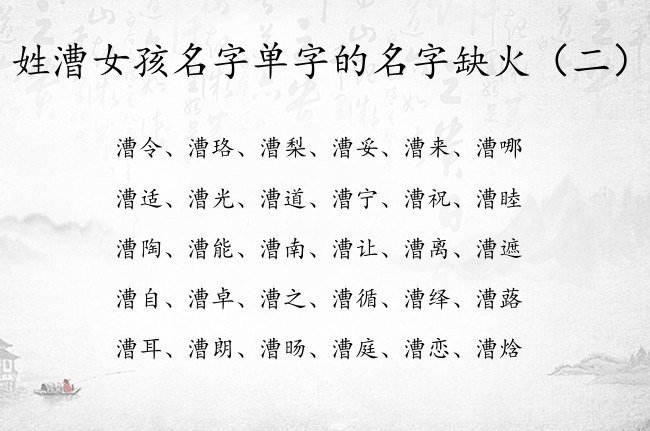 姓漕女孩名字单字的名字缺火（二）
漕令、漕珞、漕梨、漕妥、漕来、漕哪
漕适、漕光、漕道、漕宁、漕祝、漕睦
漕陶、漕能、漕南、漕让、漕离、漕遮
漕自、漕卓、漕之、漕循、漕绎、漕蕗
漕耳、漕朗、漕旸、漕庭、漕恋、漕焓